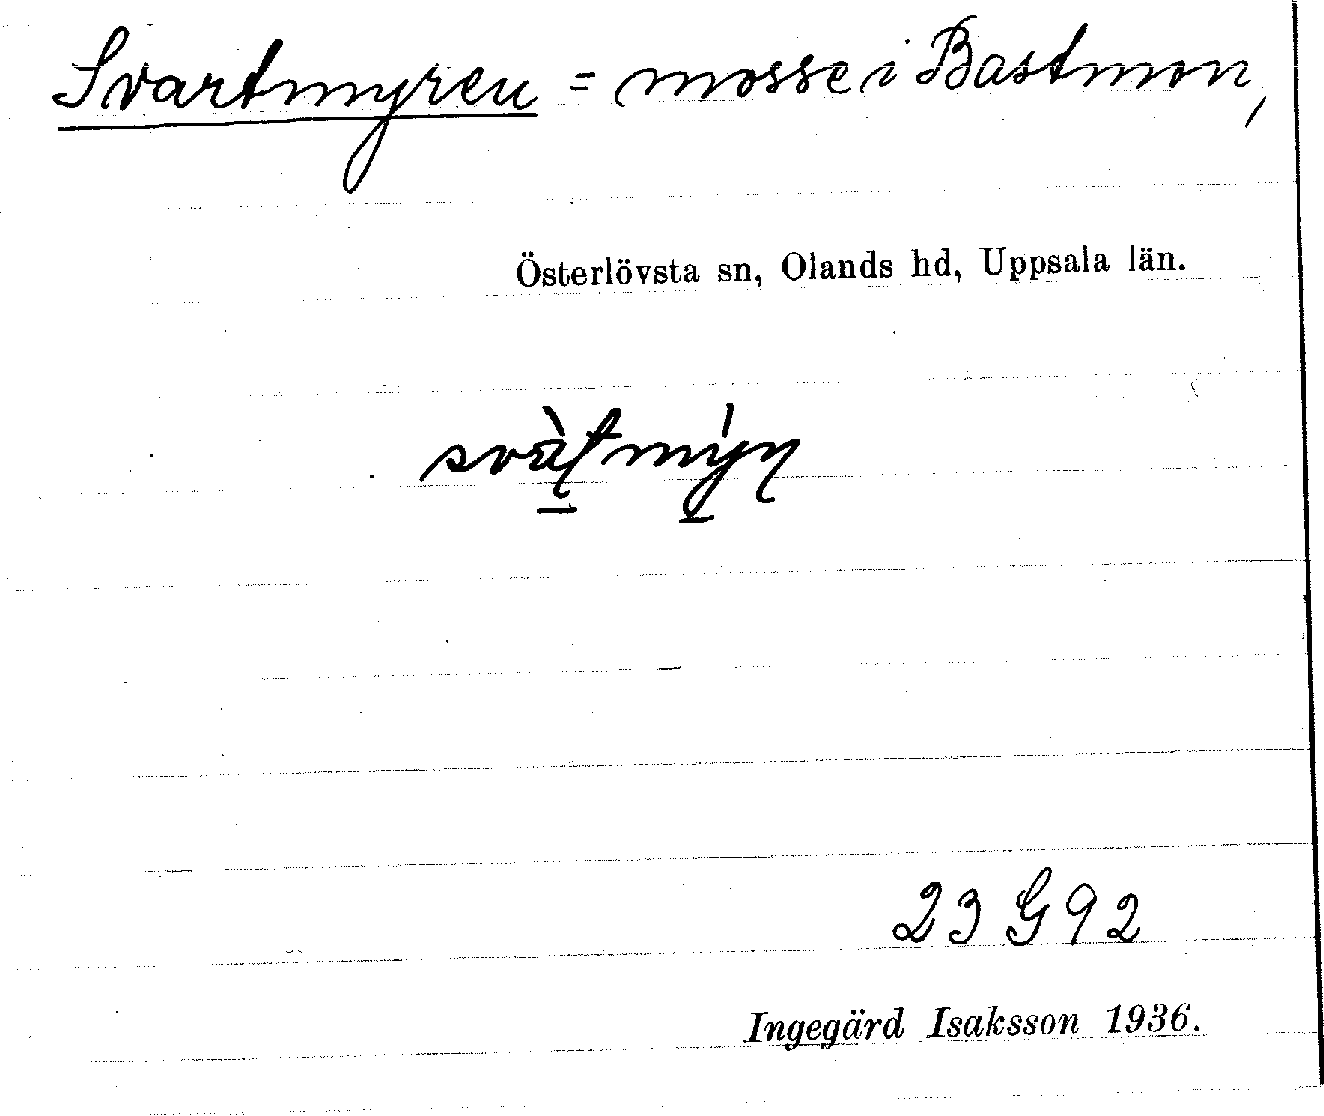 Svartmyren = mosse i Bastmon,
Österlövsta sn, Olands hd, Uppsala län.
svàʈmýɳ
23 G 92
Ingegärd Isaksson 1936.